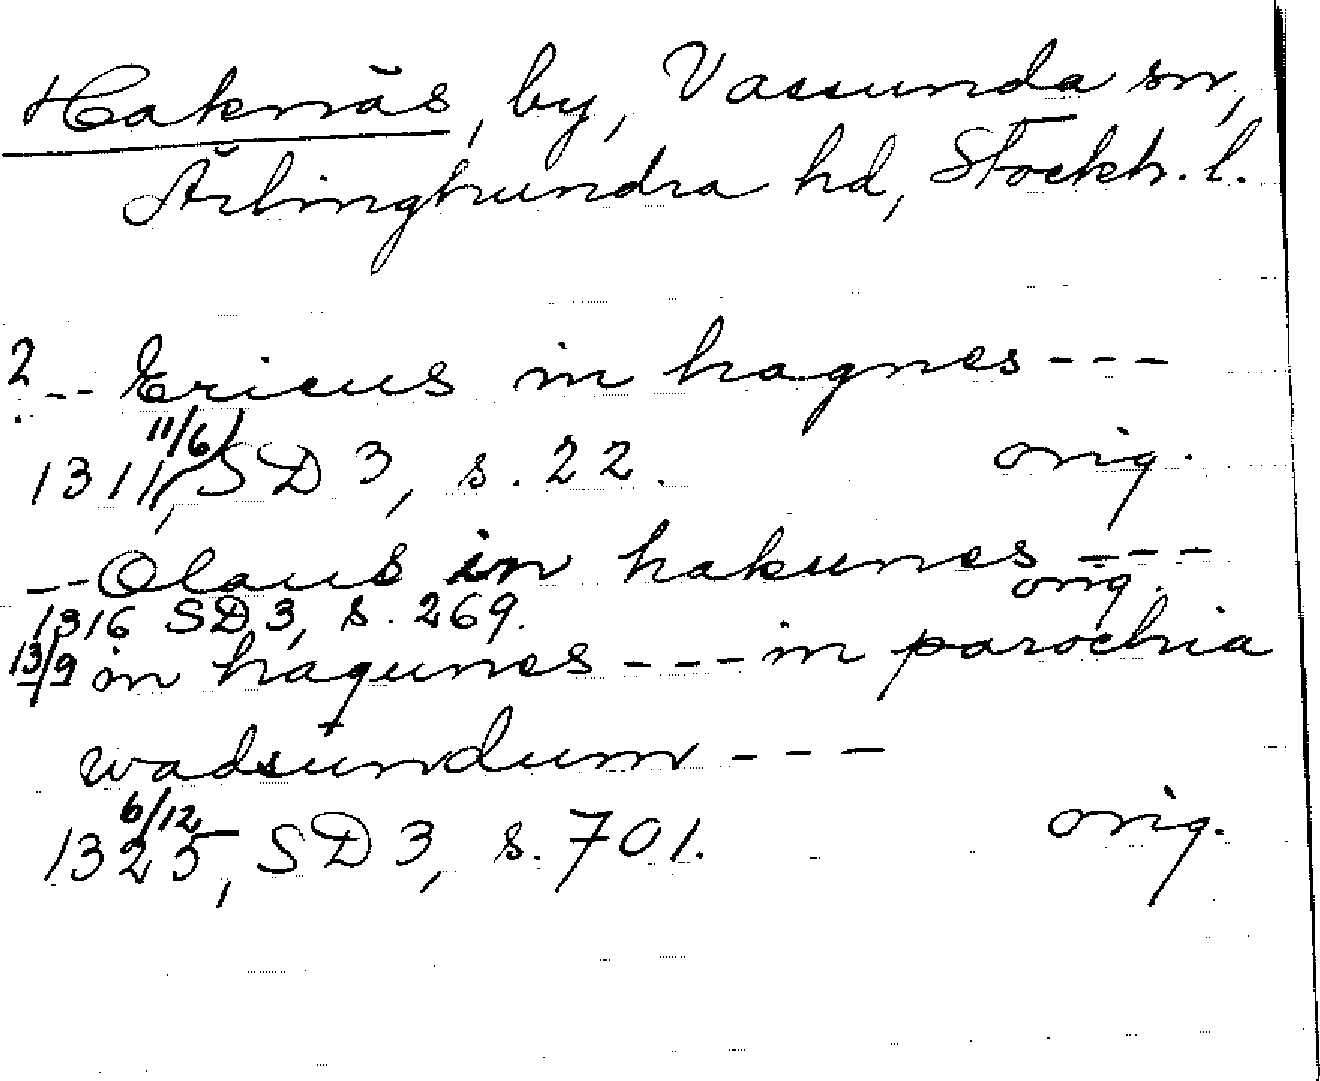 Haknäs, by, Vassunda sn,
Ärlinghundra hd, Stockh. l.
? -- Ericus in hagnes ---
11/6)
1311, SD 3, s. 22. orig.
-- Olaus in hakunes ---
1316 SD 3, s. 269. orig.
13/9 in hagunes --- in parochia
wadsundum ---
6/12
1325, SD 3, s. 701. orig.